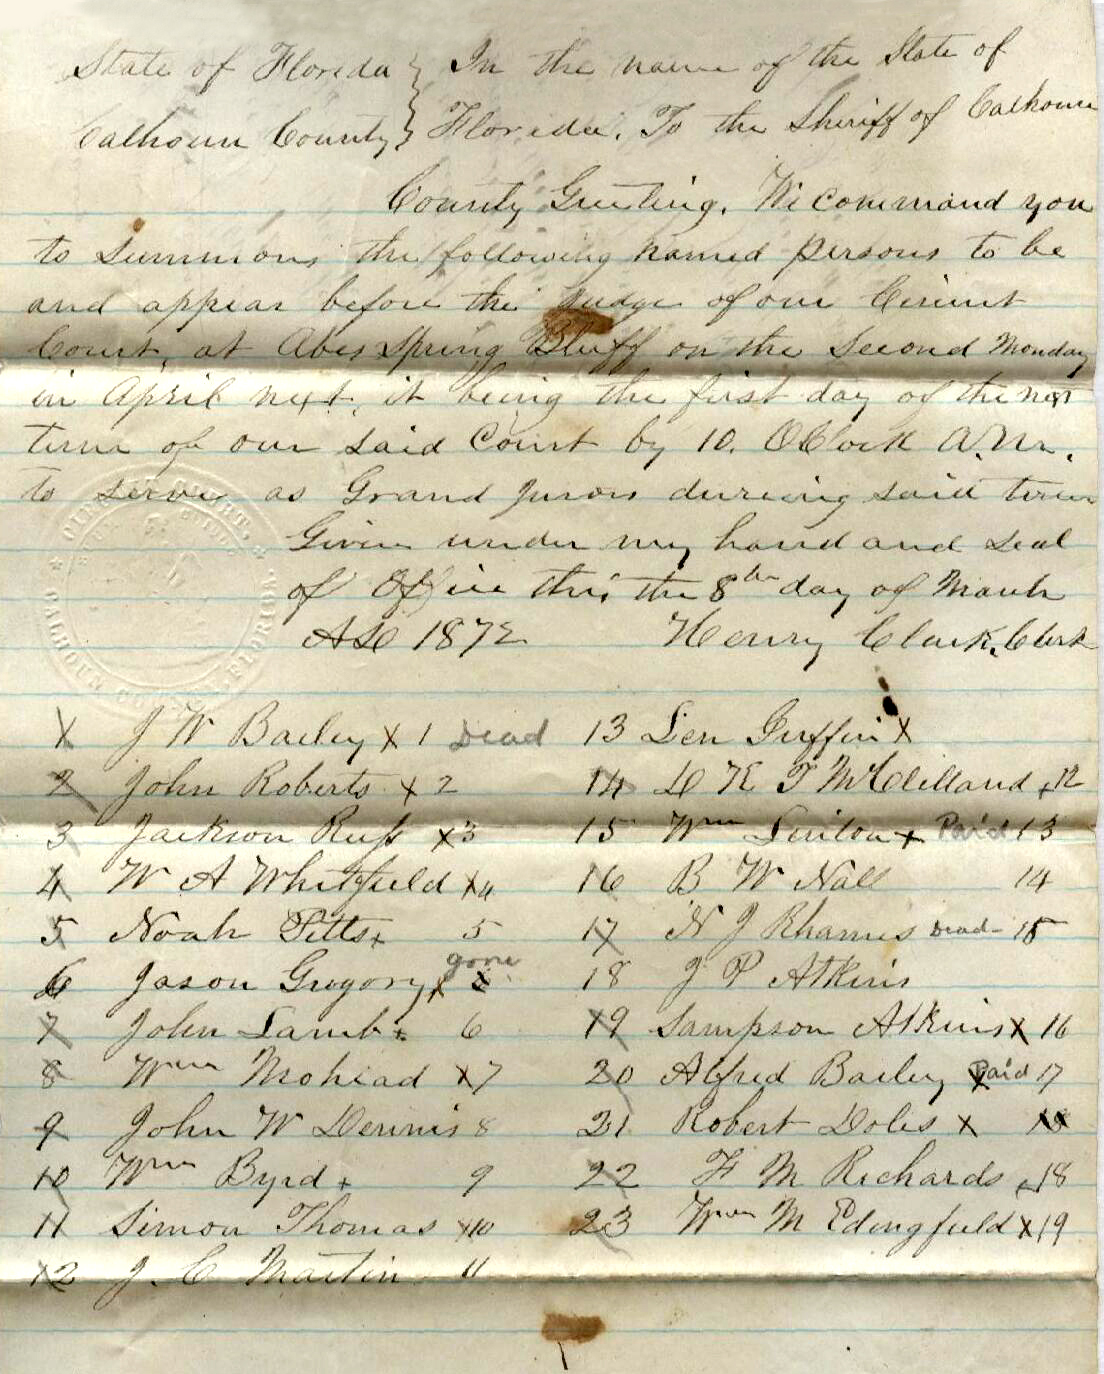 State of Florida } In the name of the State of
Calhoun County } Florida. To the Sheriff of Calhoun
County Greeting. We command you
to summons the following named persons to be
and appear before the Judge of our Circuit
Court, at Abes Spring Bluff on the Second Monday
in April next, it being the first day of the next
term of our said Court by 10. OClock A.M.
to serve as Grand Jurors dureing said term
Given under my hand and seal
of Office this the 8th day of March
AD 1872 Henry Clark, Clerk
CALHOUN COUNTY, FLORIDA
X J W Bailey X 1 Dead 13 Len Griffin X
2 John Roberts X 2 14 D K T McClelland x 12
3 Jackson Russ X 3 15 Wm Linton X Paid 13
4 W A Whitfield X 4 16 B W Nall 14
5 Noah Pitts x 5 17 N J Rhames Dead - 15
6 Jason Gregory x gone 18 J P Atkins
7 John Lamb x 6 19 Sampson Atkins X 16
8 Wm Mohead X 7 20 Alfred Bailey X Paid 17
9 John W Dennis 8 21 Robert Doles X 18
10 Wm Byrd x 9 22 F M Richards x 18
11 Simon Thomas X 10 23 Wm M Edingfield X 19
12 J. C Martin 11